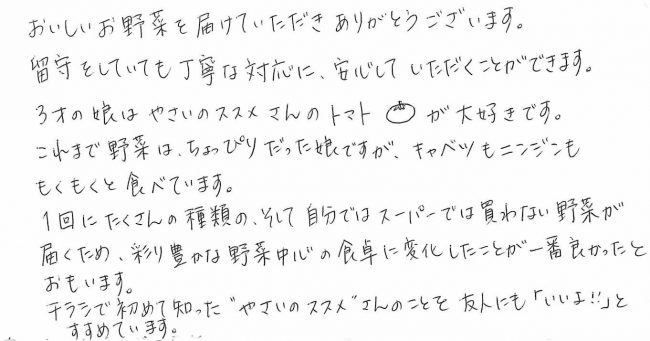 おいしいお野菜を届けていただきありがとうございます。
留守をしていても丁寧な対応に、安心していただくことができます。
3才の娘はやさいのススメさんのトマトが大好きです。
これまで野菜は、ちょっぴりだった娘ですが、キャベツもニンジンも
もくもくと食べています。
1回にたくさんの種類の、そして自分ではスーパーでは買わない野菜が
届くため、彩り豊かな野菜中心の食卓に変化したことが一番良かったと
おもいます。
チラシで初めて知った"やさいのススメ"さんのことを友人にも「いいよ!!」と
すすめています。